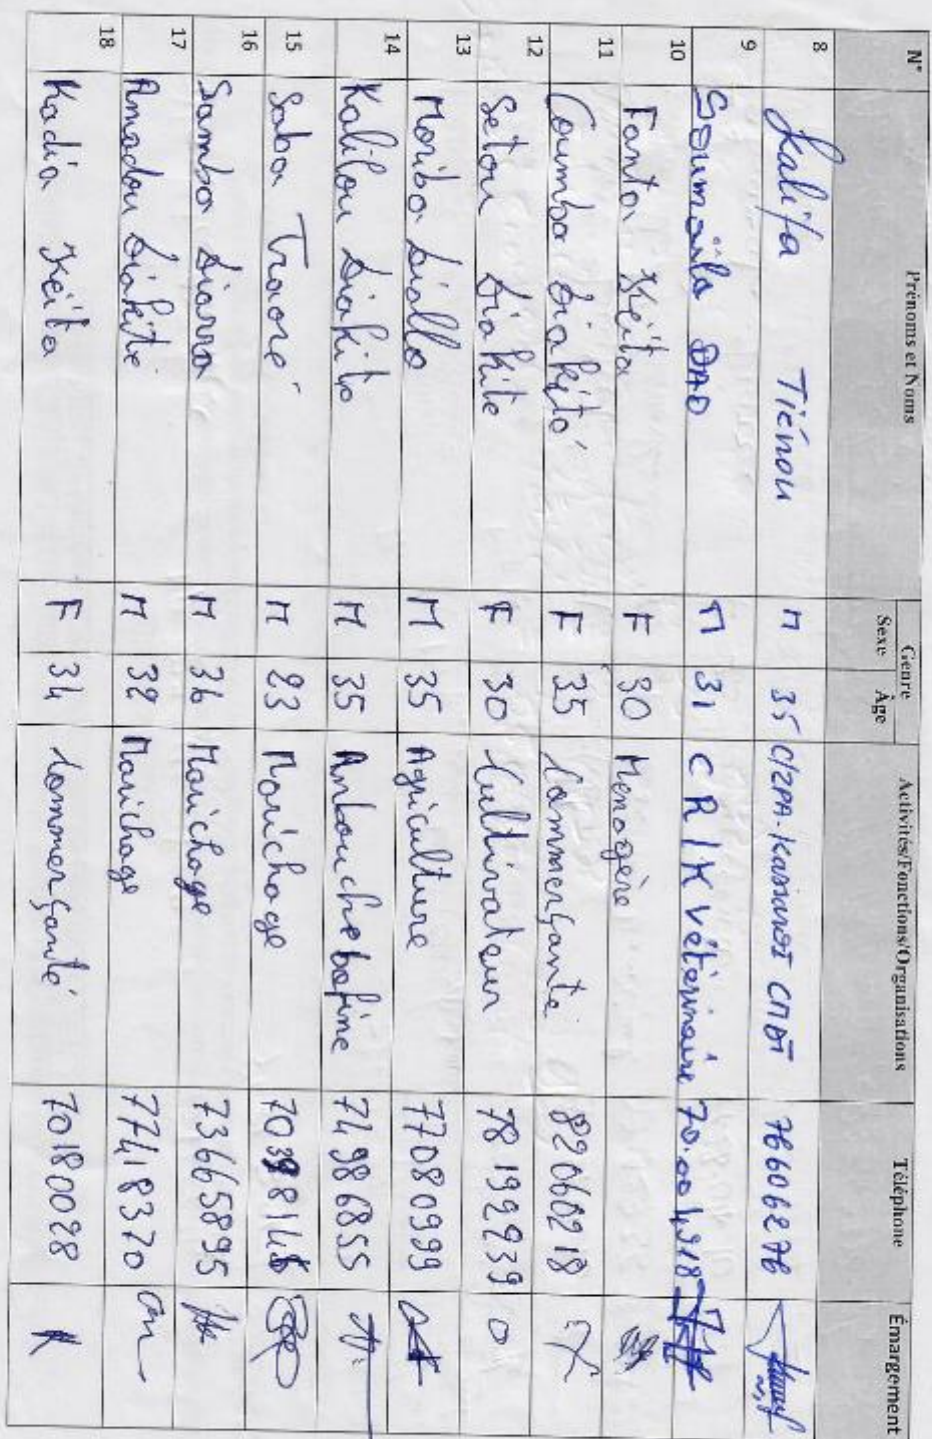 N° Prénoms et Noms Genre Activités/Fonctions/Organisations Téléphone Émargement
Sexe Âge
8 Kalifa Tiénou M 35 76606276
9 Soumaïla DAO M 31 CR/K vétérinaire 70.00 4918
10 Fanta Keïta F 30 Menagère
11 Coumba Diakité F 35 Commerçante 82060218
12 Sétou Diakite F 30 Cultivateur 78199239
13 Moriba Diallo M 35 Agriculture 77080999
14 Kalilou Diakite M 35 74986855
15 Saba Traoré M 23 Marichage
16 Samba Diarra M 36 Marichage 73665895
17 Amadou Diakité M 32 Marichage 77418370
18 Kadia Keïta F 34 Commerçante 70180028